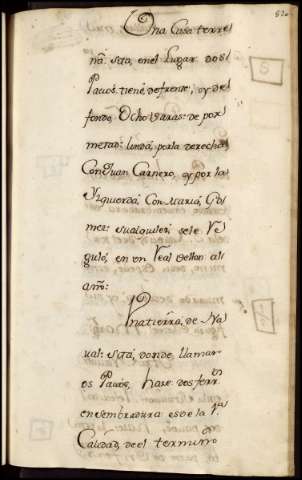 Una Casa terre
na. Sita, en el Lugar dos
Pacios, tiene de frente, y de
fondo, Ocho Varas: de por
metad: linda, por la derecha
Con Juan Carnero, y por la
Yzquierda, Con Maria, Go
mez: su alquiler, se le Re
guló, en un Real de Vellon al
año:
Una tierra, de Na
ual: Sita, donde, llaman
os Pacios, haze dos ferr.s
en sembradura: es de la 1.a
Calidad, de el termino